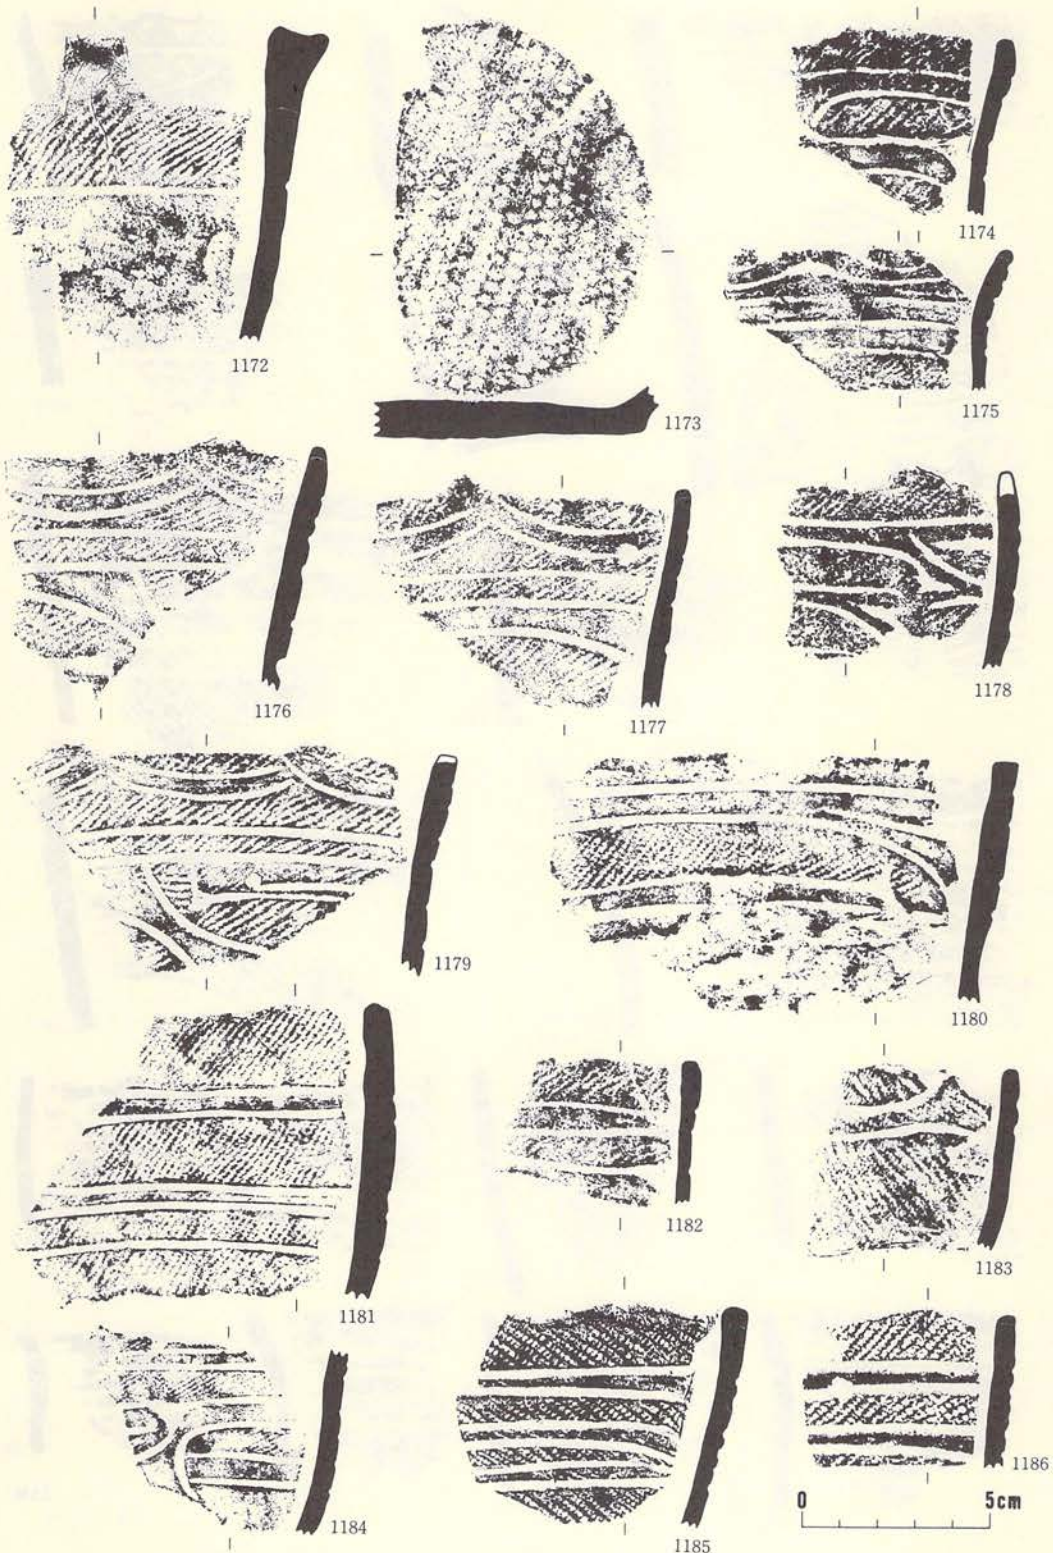 1172
1173
1174
1175
1176
1177
1178
1179
1180
1181
1182
1183
1184
1185
1186
0 5cm